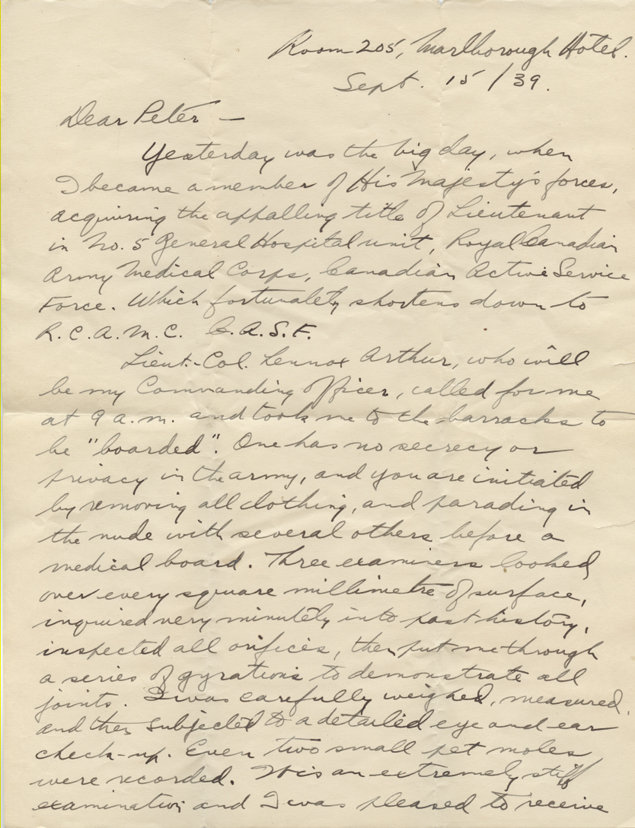 Room 205, Marlborough Hotel.
Sept. 15/39.
Dear Peter —
Yesterday was the big day, when
I became a member of His Majesty's forces,
acquiring the appalling title of Lieutenant
in No. 5 General Hospital unit, Royal Canadian
Army Medical Corps, Canadian Active Service
Force. Which fortunately shortens down to
R.C.A.M.C. C.A.S.F.
Lieut.-Col. Lennox Arthur, who will
be my Commanding Officer, called for me
at 9 a.m. and took me to the barracks to
be "boarded". One has no secrecy or
privacy in the army, and you are initiated
by removing all clothing, and parading in
the nude with several others before a
medical board. Three examiners looked
over every square millimetre of surface,
inquired very minutely into past history,
inspected all orifices, then put me through
a series of gyrations to demonstrate all
joints. I was carefully weighed, measured,
and then subjected to a detailed eye and ear
check-up. Even two small pet moles
were recorded. It is an extremely stiff
examination and I was pleased to receive